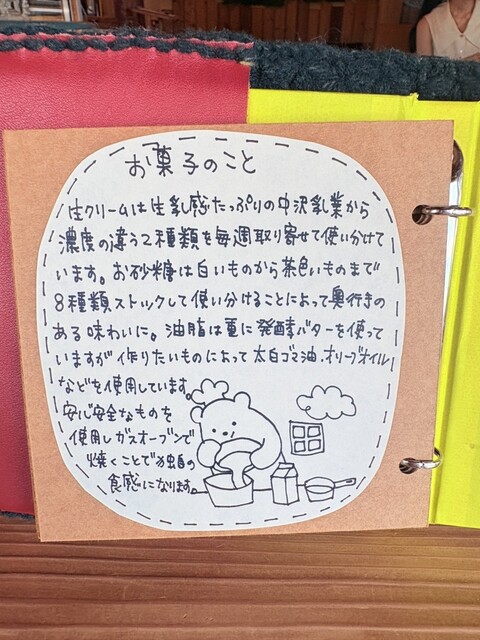 お菓子のこと
生クリームは生乳感たっぷりの中沢乳業から
濃度の違う2種類を毎週取り寄せて使い分けて
います。お砂糖は白いものから茶色いものまで
8種類ストックして使い分けることによって奥行きの
ある味わいに。油脂は主に発酵バターを使って
いますが作りたいものによって太白ゴマ油、オリーブオイル
などを使用しています。
安心安全なものを
使用しガスオーブンで
焼くことで独自の
食感になります。